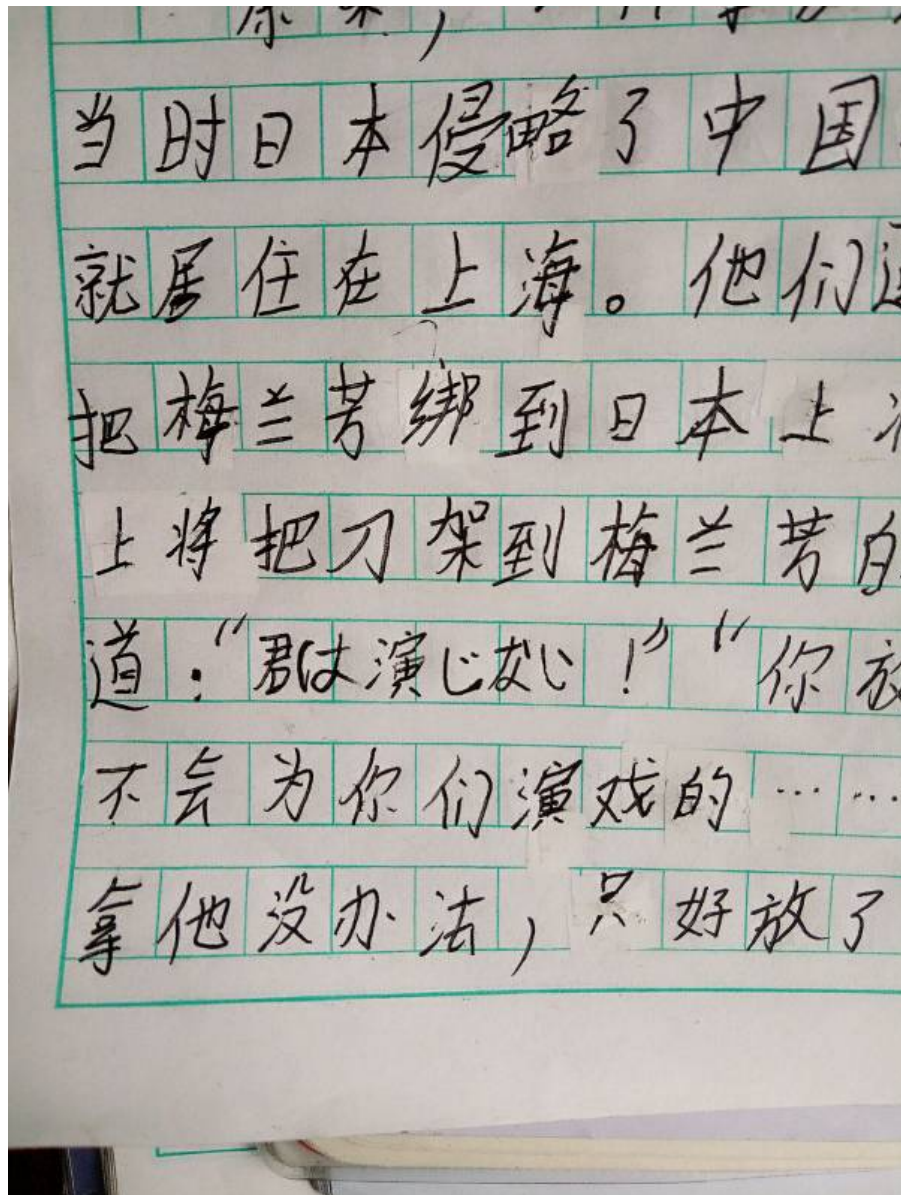 当时日本侵略了中国
就居住在上海。他们
把梅兰芳绑到日本上
上将把刀架到梅兰芳
道：“君は演じない！”“你放
不会为你们演戏的……
拿他没办法，只好放了